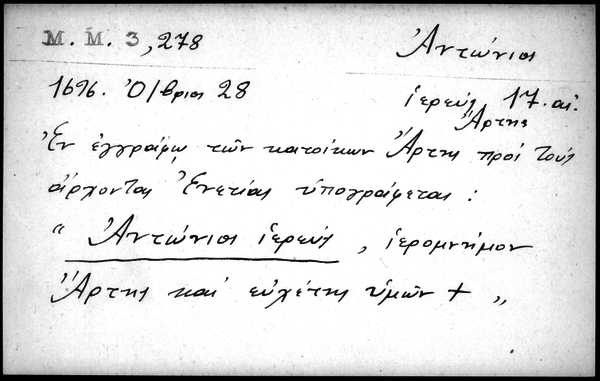 Μ. Μ. 3, 278 Ἀντώνιος
1696. Ὀ/βριος 28 ἱερεύς 17. αἰ.
Ἄρτης
Ἐν ἐγγράφῳ τῶν κατοίκων Ἄρτης πρός τούς
ἄρχοντας Ἐνετίας ὑπογράφεται :
“ Ἀντώνιος ἱερεύς , ἱερομνήμον
Ἄρτης καί εὐχέτης ὑμῶν + „